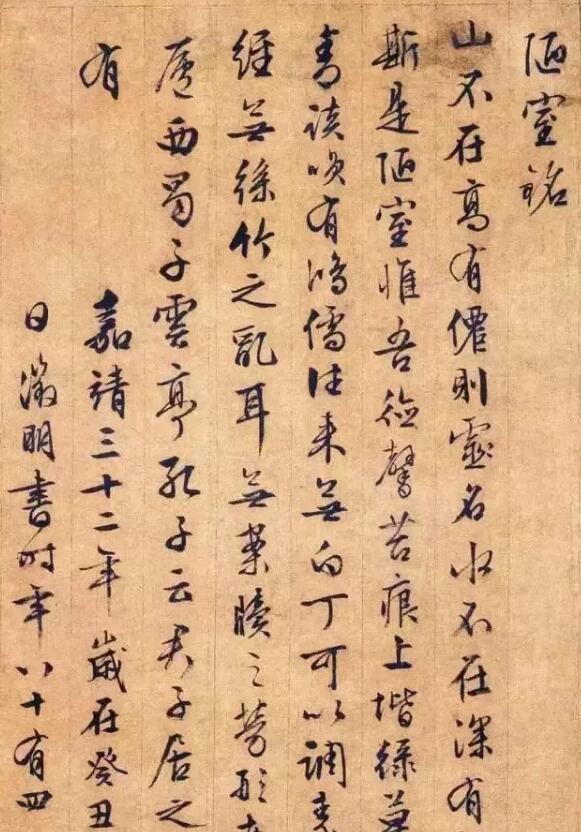 陋室銘
山不在高有僊則靈名水不在深有
斯是陋室惟吾德馨苔痕上堦綠草
青談咲有鴻儒往來無白丁可以調素
經無絲竹之亂耳無案牘之勞形
廬西蜀子雲亭孔子云君子居之
有
嘉靖三十二年歲在癸丑
日徵明書時年八十有四